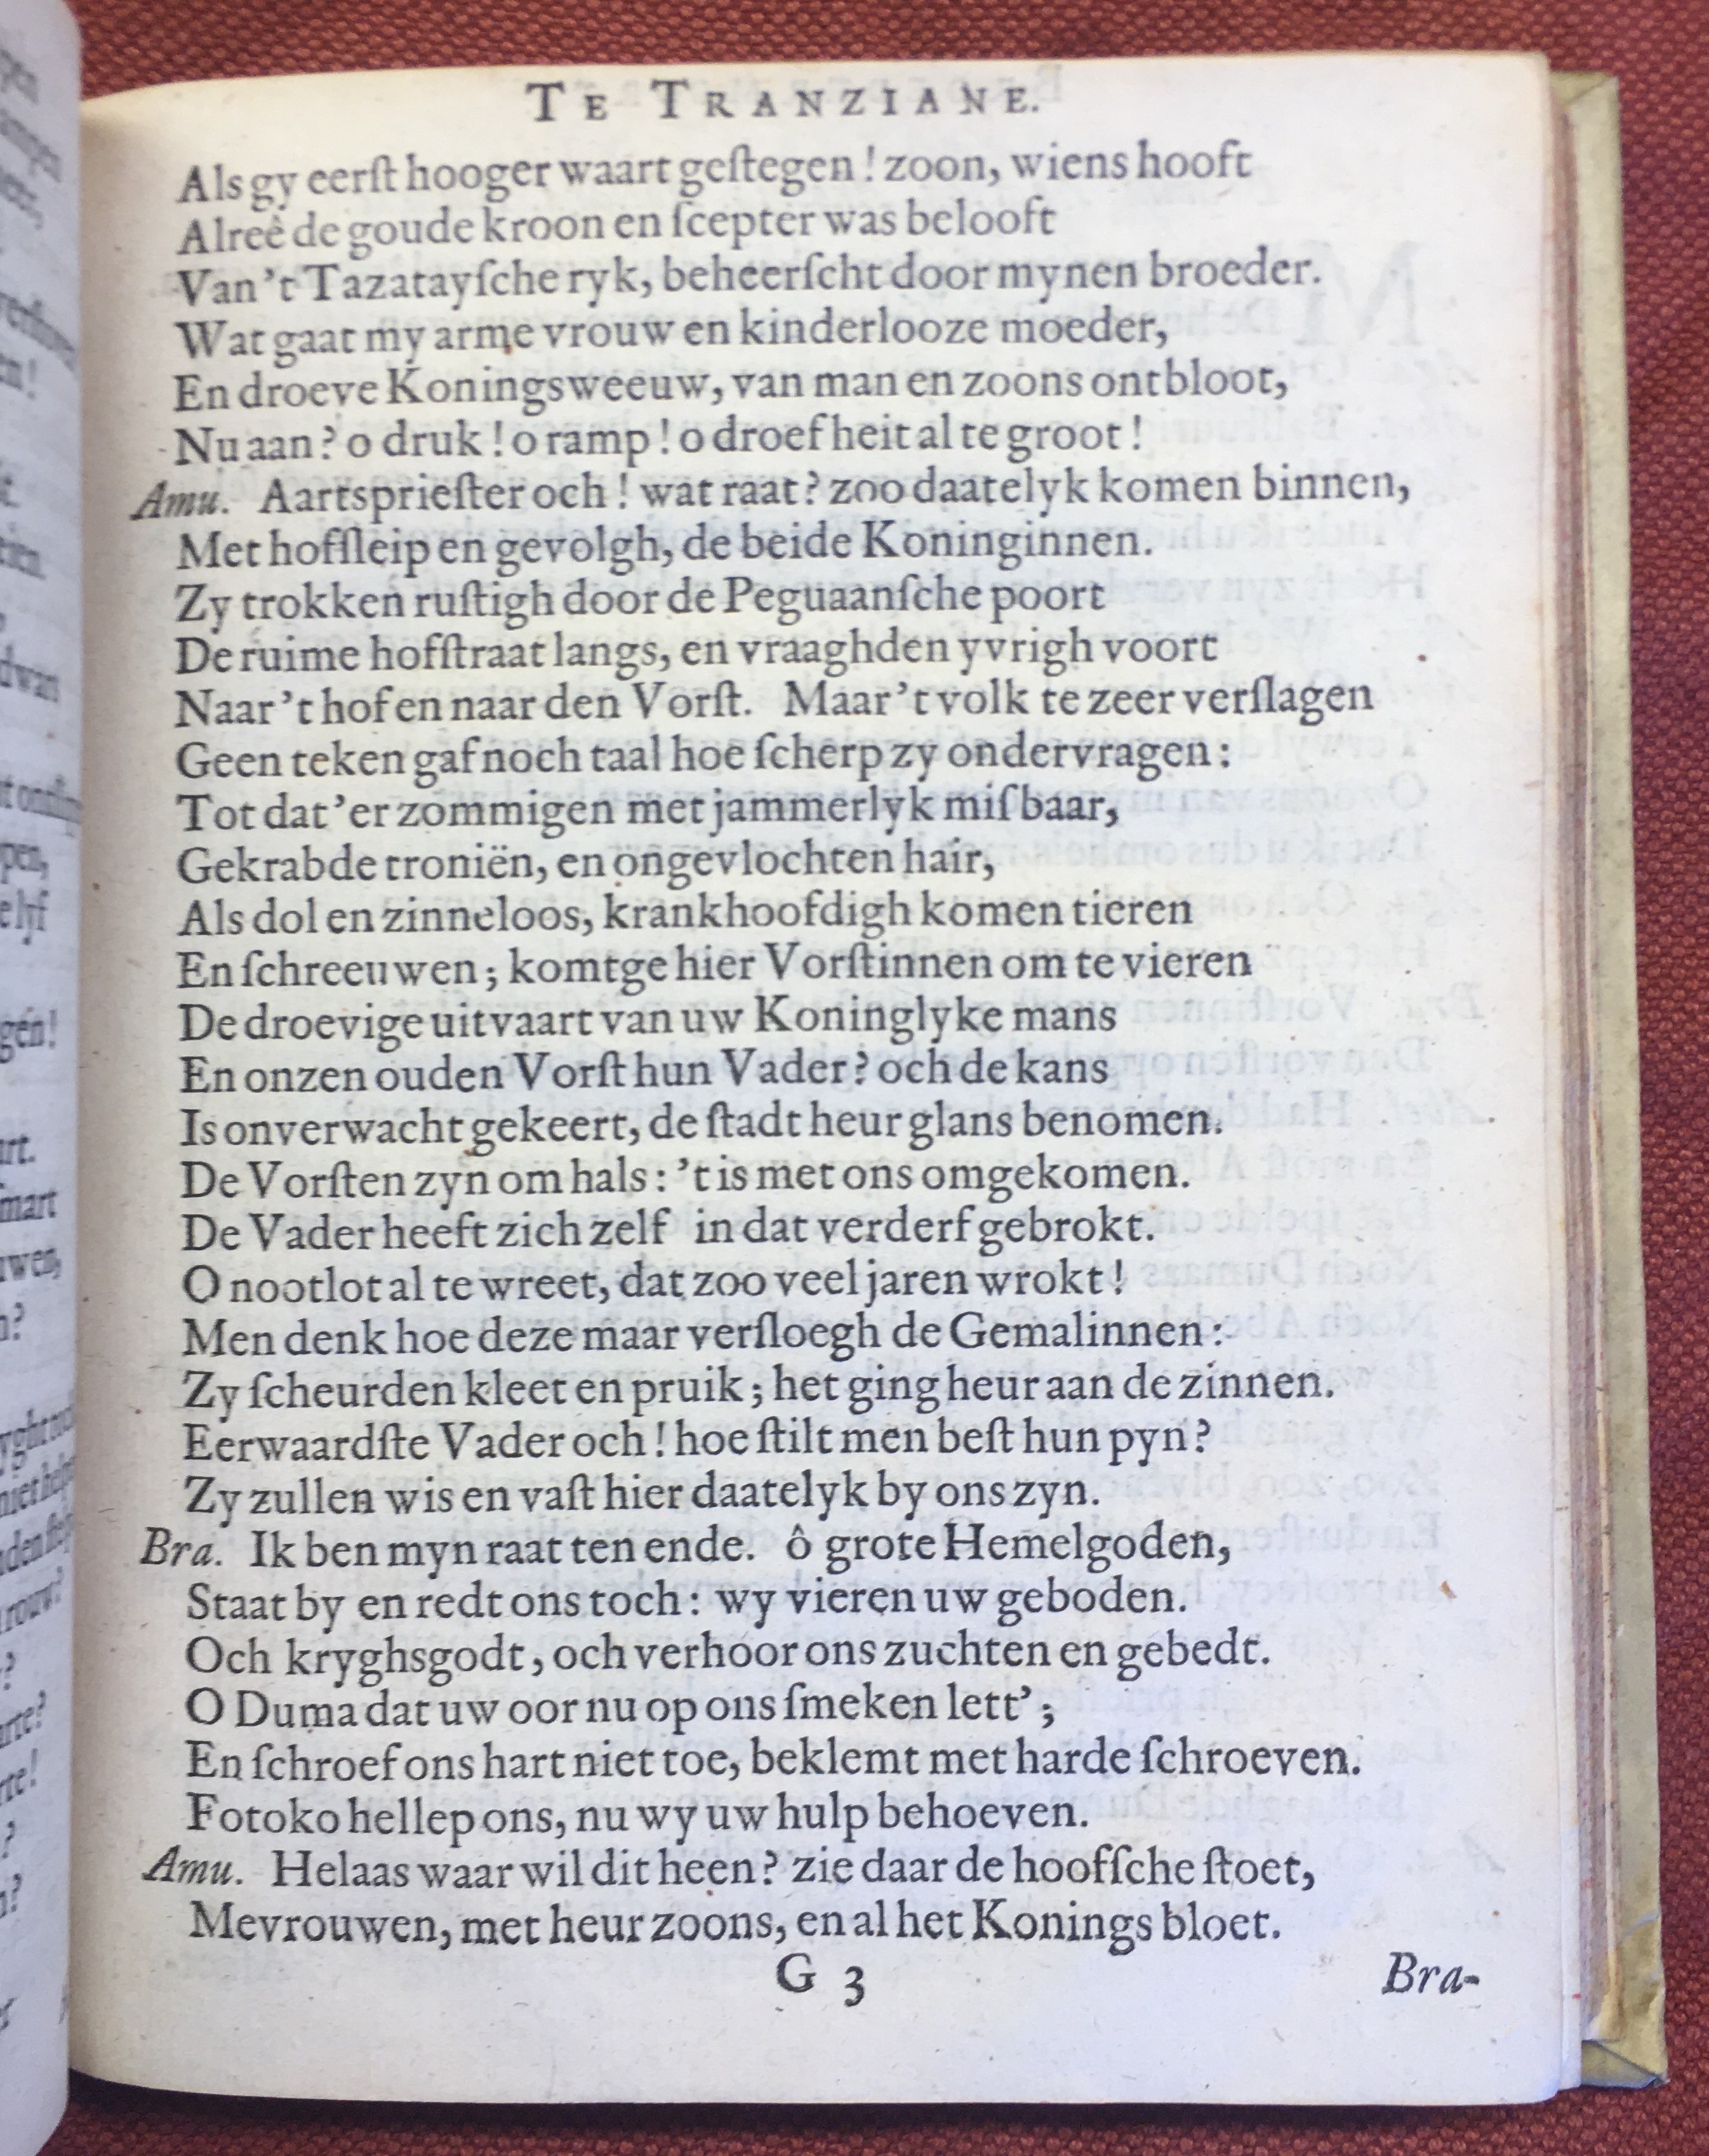 TE TRANZIANE.
Als gy eerſt hooger waart geſtegen! zoon, wiens hooft
Alreê de goude kroon en ſcepter was belooft
Van 't Tazatayſche ryk, beheerſcht door mynen broeder.
Wat gaat my arme vrouw en kinderlooze moeder,
En droeve Koningsweeuw, van man en zoons ontbloot,
Nu aan? o druk! o ramp! o droefheit al te groot!
Amu. Aartsprieſter och! wat raat? zoo daatelyk komen binnen,
Met hofſleip en gevolgh, de beide Koninginnen.
Zy trokken ruſtigh door de Peguaanſche poort
De ruime hofſtraat langs, en vraaghden yvrigh voort
Naar 't hof en naar den Vorſt. Maar 't volk te zeer verſlagen
Geen teken gaf noch taal hoe ſcherp zy ondervragen:
Tot dat 'er zommigen met jammerlyk miſbaar,
Gekrabde troniën, en ongevlochten hair,
Als dol en zinneloos, krankhoofdigh komen tieren
En ſchreeuwen; komtge hier Vorſtinnen om te vieren
De droevige uitvaart van uw Koninglyke mans
En onzen ouden Vorſt hun Vader? och de kans
Is onverwacht gekeert, de ſtadt heur glans benomen.
De Vorſten zyn om hals: 't is met ons omgekomen.
De Vader heeft zich zelf in dat verderf gebrokt.
O nootlot al te wreet, dat zoo veel jaren wrokt!
Men denk hoe deze maar verſloegh de Gemalinnen:
Zy ſcheurden kleet en pruik; het ging heur aan de zinnen.
Eerwaardſte Vader och! hoe ſtilt men beſt hun pyn?
Zy zullen wis en vaſt hier daatelyk by ons zyn.
Bra. Ik ben myn raat ten ende. ô grote Hemelgoden,
Staat by en redt ons toch: wy vieren uw geboden.
Och kryghsgodt, och verhoor ons zuchten en gebedt.
O Duma dat uw oor nu op ons ſmeken lett';
En ſchroef ons hart niet toe, beklemt met harde ſchroeven.
Fotoko hellep ons, nu wy uw hulp behoeven.
Amu. Helaas waar wil dit heen? zie daar de hoofſche ſtoet,
Mevrouwen, met heur zoons, en al het Konings bloet.
G 3
Bra-